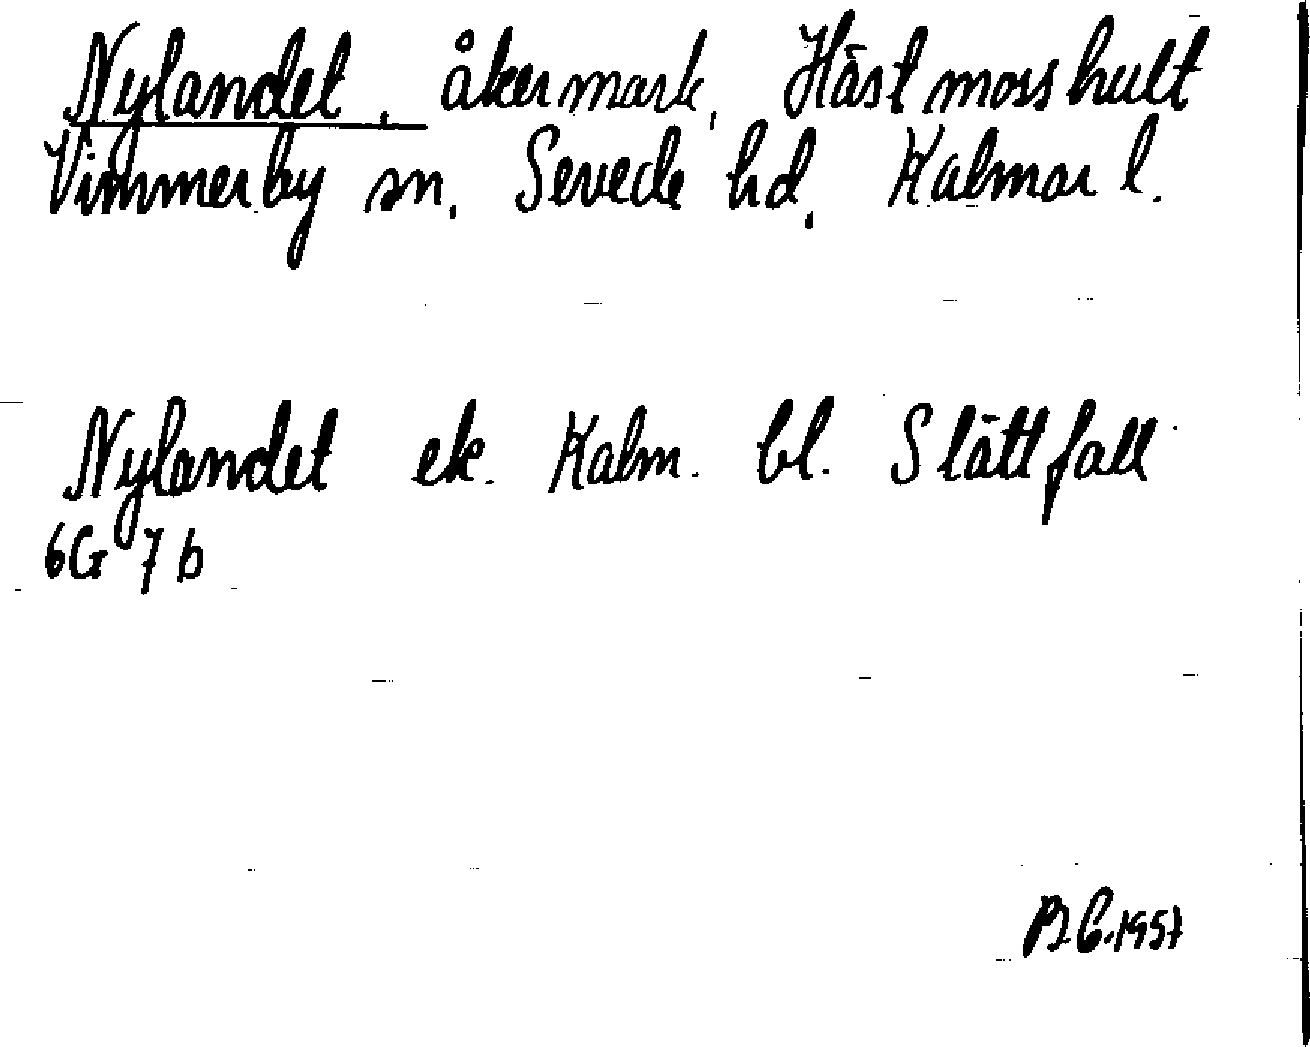 Nylandet, åkermark, Hästmosshult
Vimmerby sn, Sevede hd, Kalmar l.
Nylandet ek. Kalm. bl. Slättfall
6G 7b
B.G. 1957